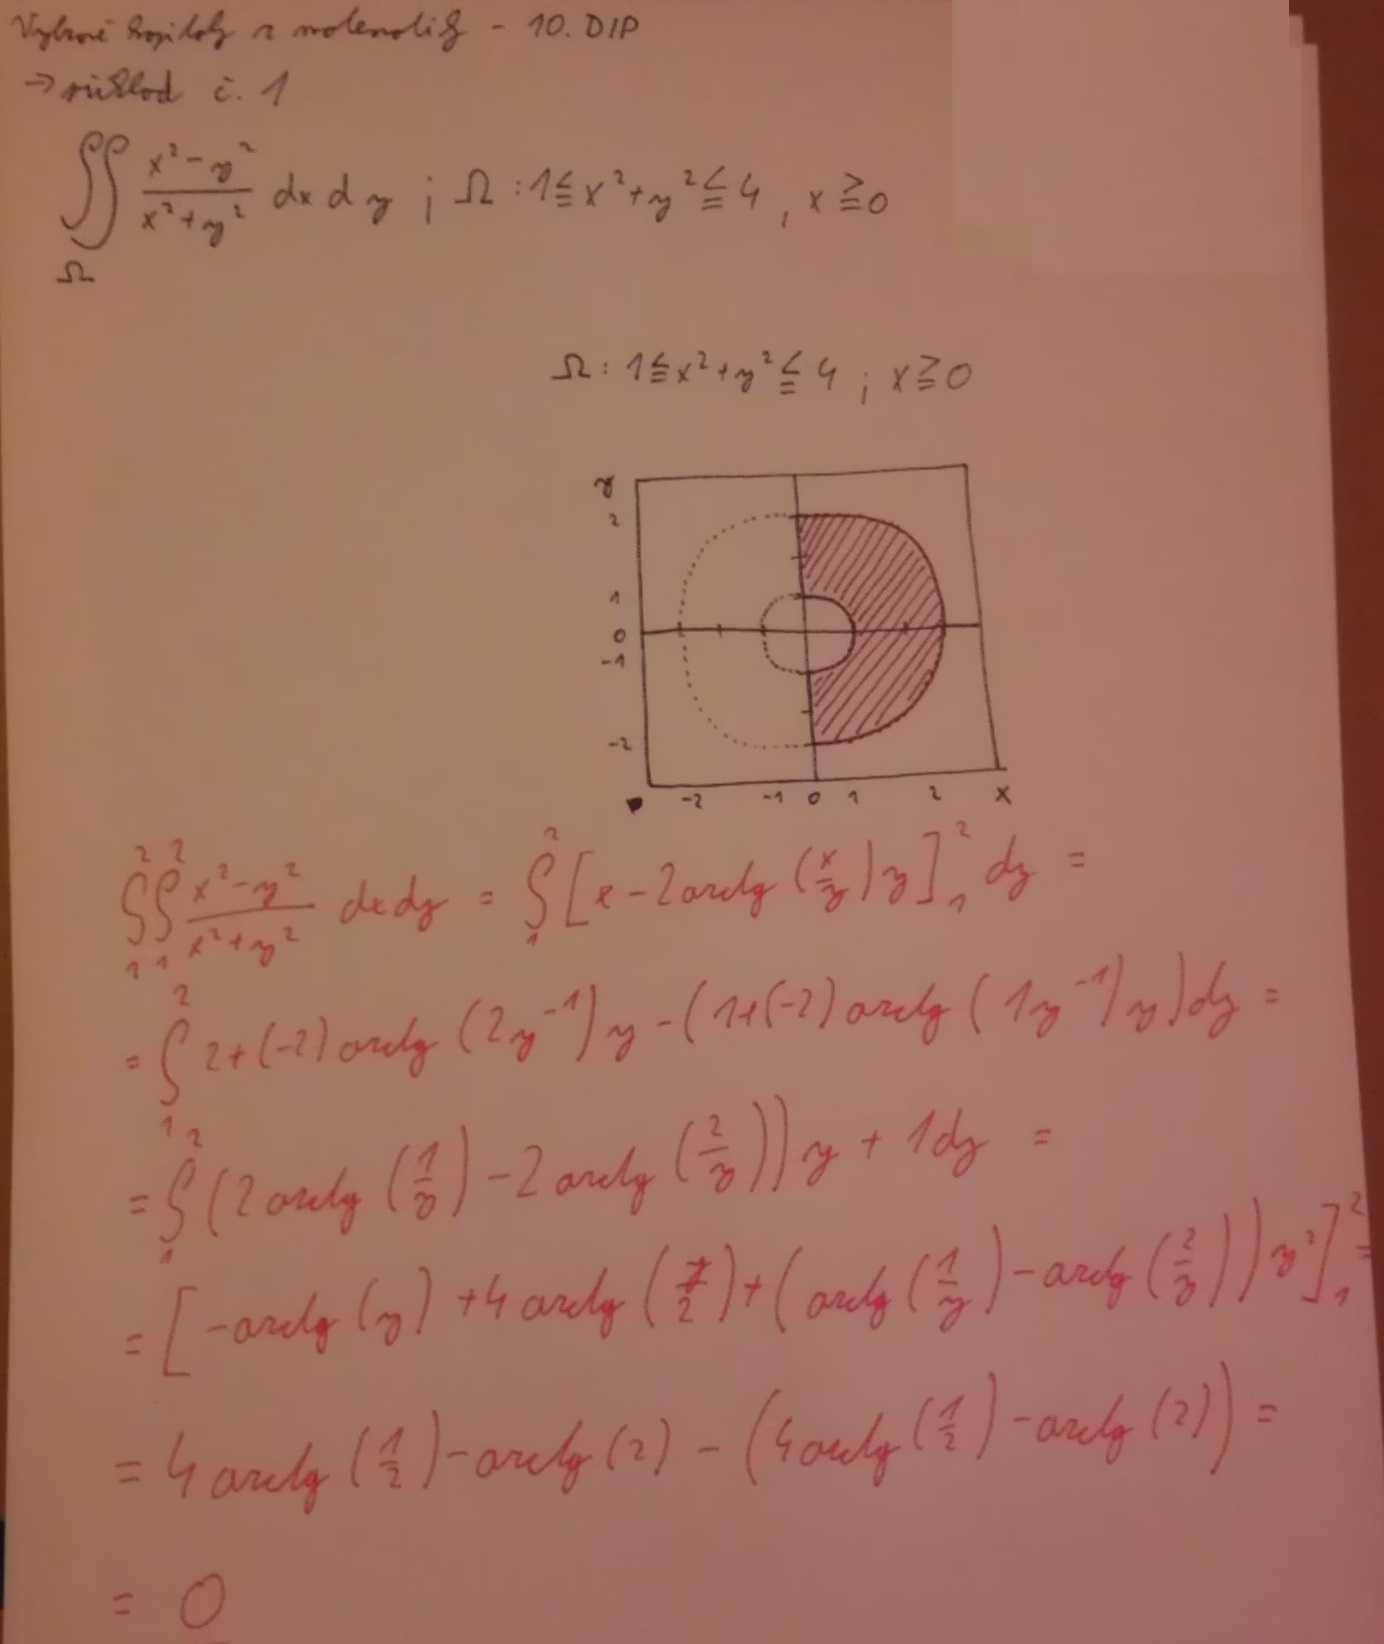 Vybrané kapitoly z matematiky - 10. DIP
→ příklad č. 1
∬_Ω (x²-y²)/(x²+y²) dx dy ; Ω : 1≦x²+y²≦4 , x≧0
Ω : 1≦x²+y²≦4 ; x≧0
y
2
1
0
-1
-2
-2 -1 0 1 2 x
∫₁² ∫₁² (x²-y²)/(x²+y²) dxdy = ∫₁² [x-2arctg(x/y)y]₁² dy =
= ∫₁² 2+(-2)arctg(2y⁻¹)y-(1+(-2)arctg(1y⁻¹)y)dy =
= ∫₁² (2arctg(1/y)-2arctg(2/y))y+1dy =
= [-arctg(y)+4arctg(y/2)+(arctg(1/y)-arctg(2/y))y²]₁² =
= 4arctg(1/2)-arctg(2)-(4arctg(1/2)-arctg(2)) =
= 0